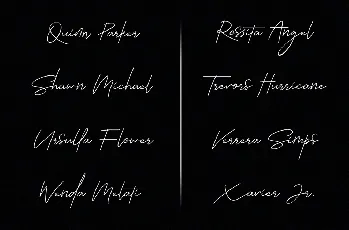 Quinn Parker
Shawn Michael
Ursulla Flower
Wenda Melati
Rossita Angel
Trevors Hurricane
Verrera Simps
Xavier Jr.